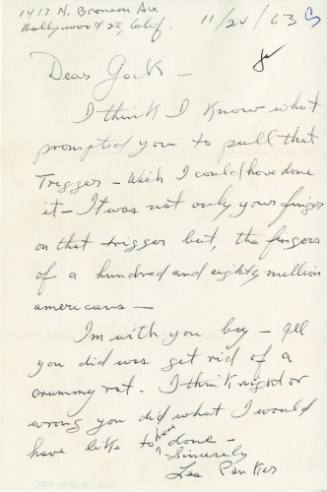 1417 N. Bronson Ave
Hollywood 28, Calif.
11/24/63
Dear Jack —
I think I know what
prompted you to pull that
Trigger — Wish I could have done
it — It was not only your finger
on that trigger but, the fingers
of a hundred and eighty million
americans —
Im with you boy — all
you did was get rid of a
crummy rat. I think right or
wrong you did what I would
have like to have done —
Sincerely
Les